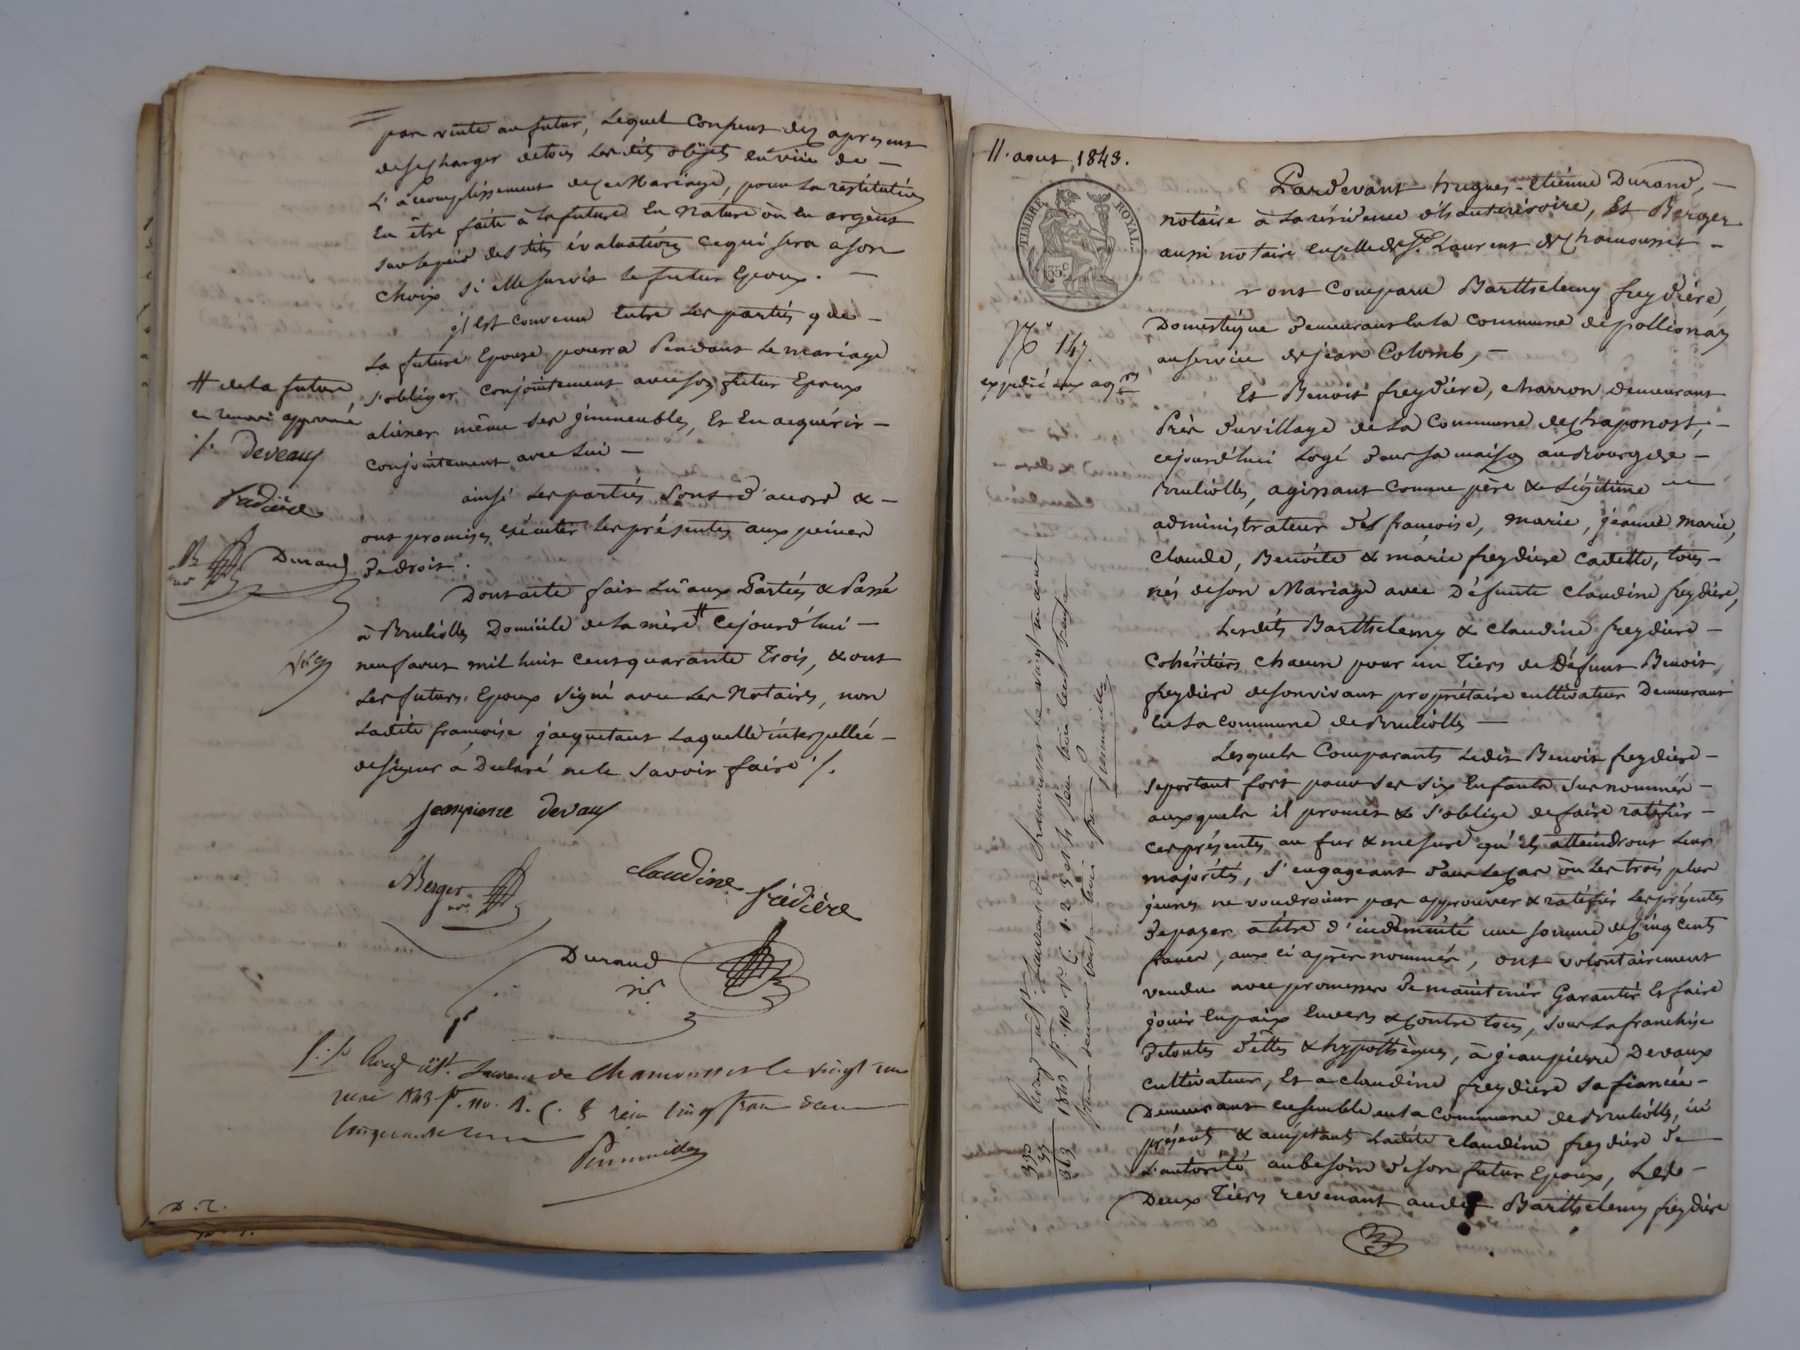 par vente au futur, Lequel Consent dez apresent
de se charger de tous Lesdits objets en vüe de —
L'accomplissement de ce Mariage, pour La restitution
En être faite à la future En Nature où en argent
sur le pied desdites évaluations ce qui sera a son
choix si elle survit le futur Epoux. —
il est convenu Entre Les parties que —
La future Epouse pourra Pendant Le mariage
s'obliger conjointement avec son futur Epoux
aliéner même ses immeubles, Et En acquérir —
conjointement avec Lui —
ainsi Les parties sont d'accord & —
ont promis exécuter les présentes aux peines
de droit.
Dont acte fait Lû aux Parties & Passé
à Brullolles Domicile de la mère # cejourd'hui —
neuf aout mil huit cent quarante Trois, & ont
Les futurs Epoux signé avec Les Notaires, non
Ladite francoise jacquetant Laquelle interpellée —
de signer à Déclaré ne le savoir faire ./.
# de la future,
en renvoi approuvé
./. deveaux
fredière
Durand
jeanpierre devaux
Berger
nre
claudine fredière
Durand
nre
Laurent de Chamousset le vingt un
1843 fo. 110. R. C. 8 reçu cinq francs
cinquante
D. R.
11. aout 1843.
TIMBRE ROYAL
35c
No 147.
expédié aux aqrs
Pardevant hugues-Etienne Durand, —
notaire à La résidence d'hauterivoire, Et Berger
aussi notaire en celle de St. Laurent de Chamousset —
ont Comparu Barthelemy freydière,
Domestique demeurant En la Commune de pollionay
au service de jean Colomb, —
Et Benoit freydière, charron demeurant
Près du village de La Commune de Chaponost, —
cejourd'hui Logé dans sa maison au Bourg de —
Brullolles, agissant Comme père & Légitime —
administrateur de francoise, marie, jeanne marie,
Claude, Benoite & marie freydière Cadette, tous —
nés de son Mariage avec Défunte Claudine freydière,
Lesdits Barthelemy & Claudine freydière —
Cohéritiers chacun pour un Tiers de Défunt Benoit
freydière de son vivant propriétaire cultivateur Demeurant
En La Commune de Brullolles —
Lesquels Comparants Ledit Benoit freydière —
se portant fort pour ses six Enfants sus nommés —
auxquels il promet & s'oblige de faire ratifier —
ces présentes au fur & mesure qu'ils atteindront Leur
majorité, s'engageant dans Le cas où Les trois plus
jeunes ne voudroient pas approuver & ratifier Les présentes
de payer a titre d'indemnité une somme de Cinq cents
francs, aux ci après nommés, ont volontairement
vendu avec promesse de maintenir Garantir Et faire
jouir En paix Envers & Contre tous, sous La franchise
de toutes dettes & hypothèques, à jean pierre Devaux
cultivateur, Et a claudine freydière sa fiancée —
Demeurant ensemble en La Commune de Brullolles, ici
présents & acceptants Ladite Claudine freydière de
L'autorité au besoin de son futur Epoux, Les —
Deux Tiers revenant audit Barthelemy freydière
St. Laurent de Chamousset le vingt un aout
1843 fo. 110 Vo. C. 1. 2. 3 et 4 reçu trois cent trente
353
363